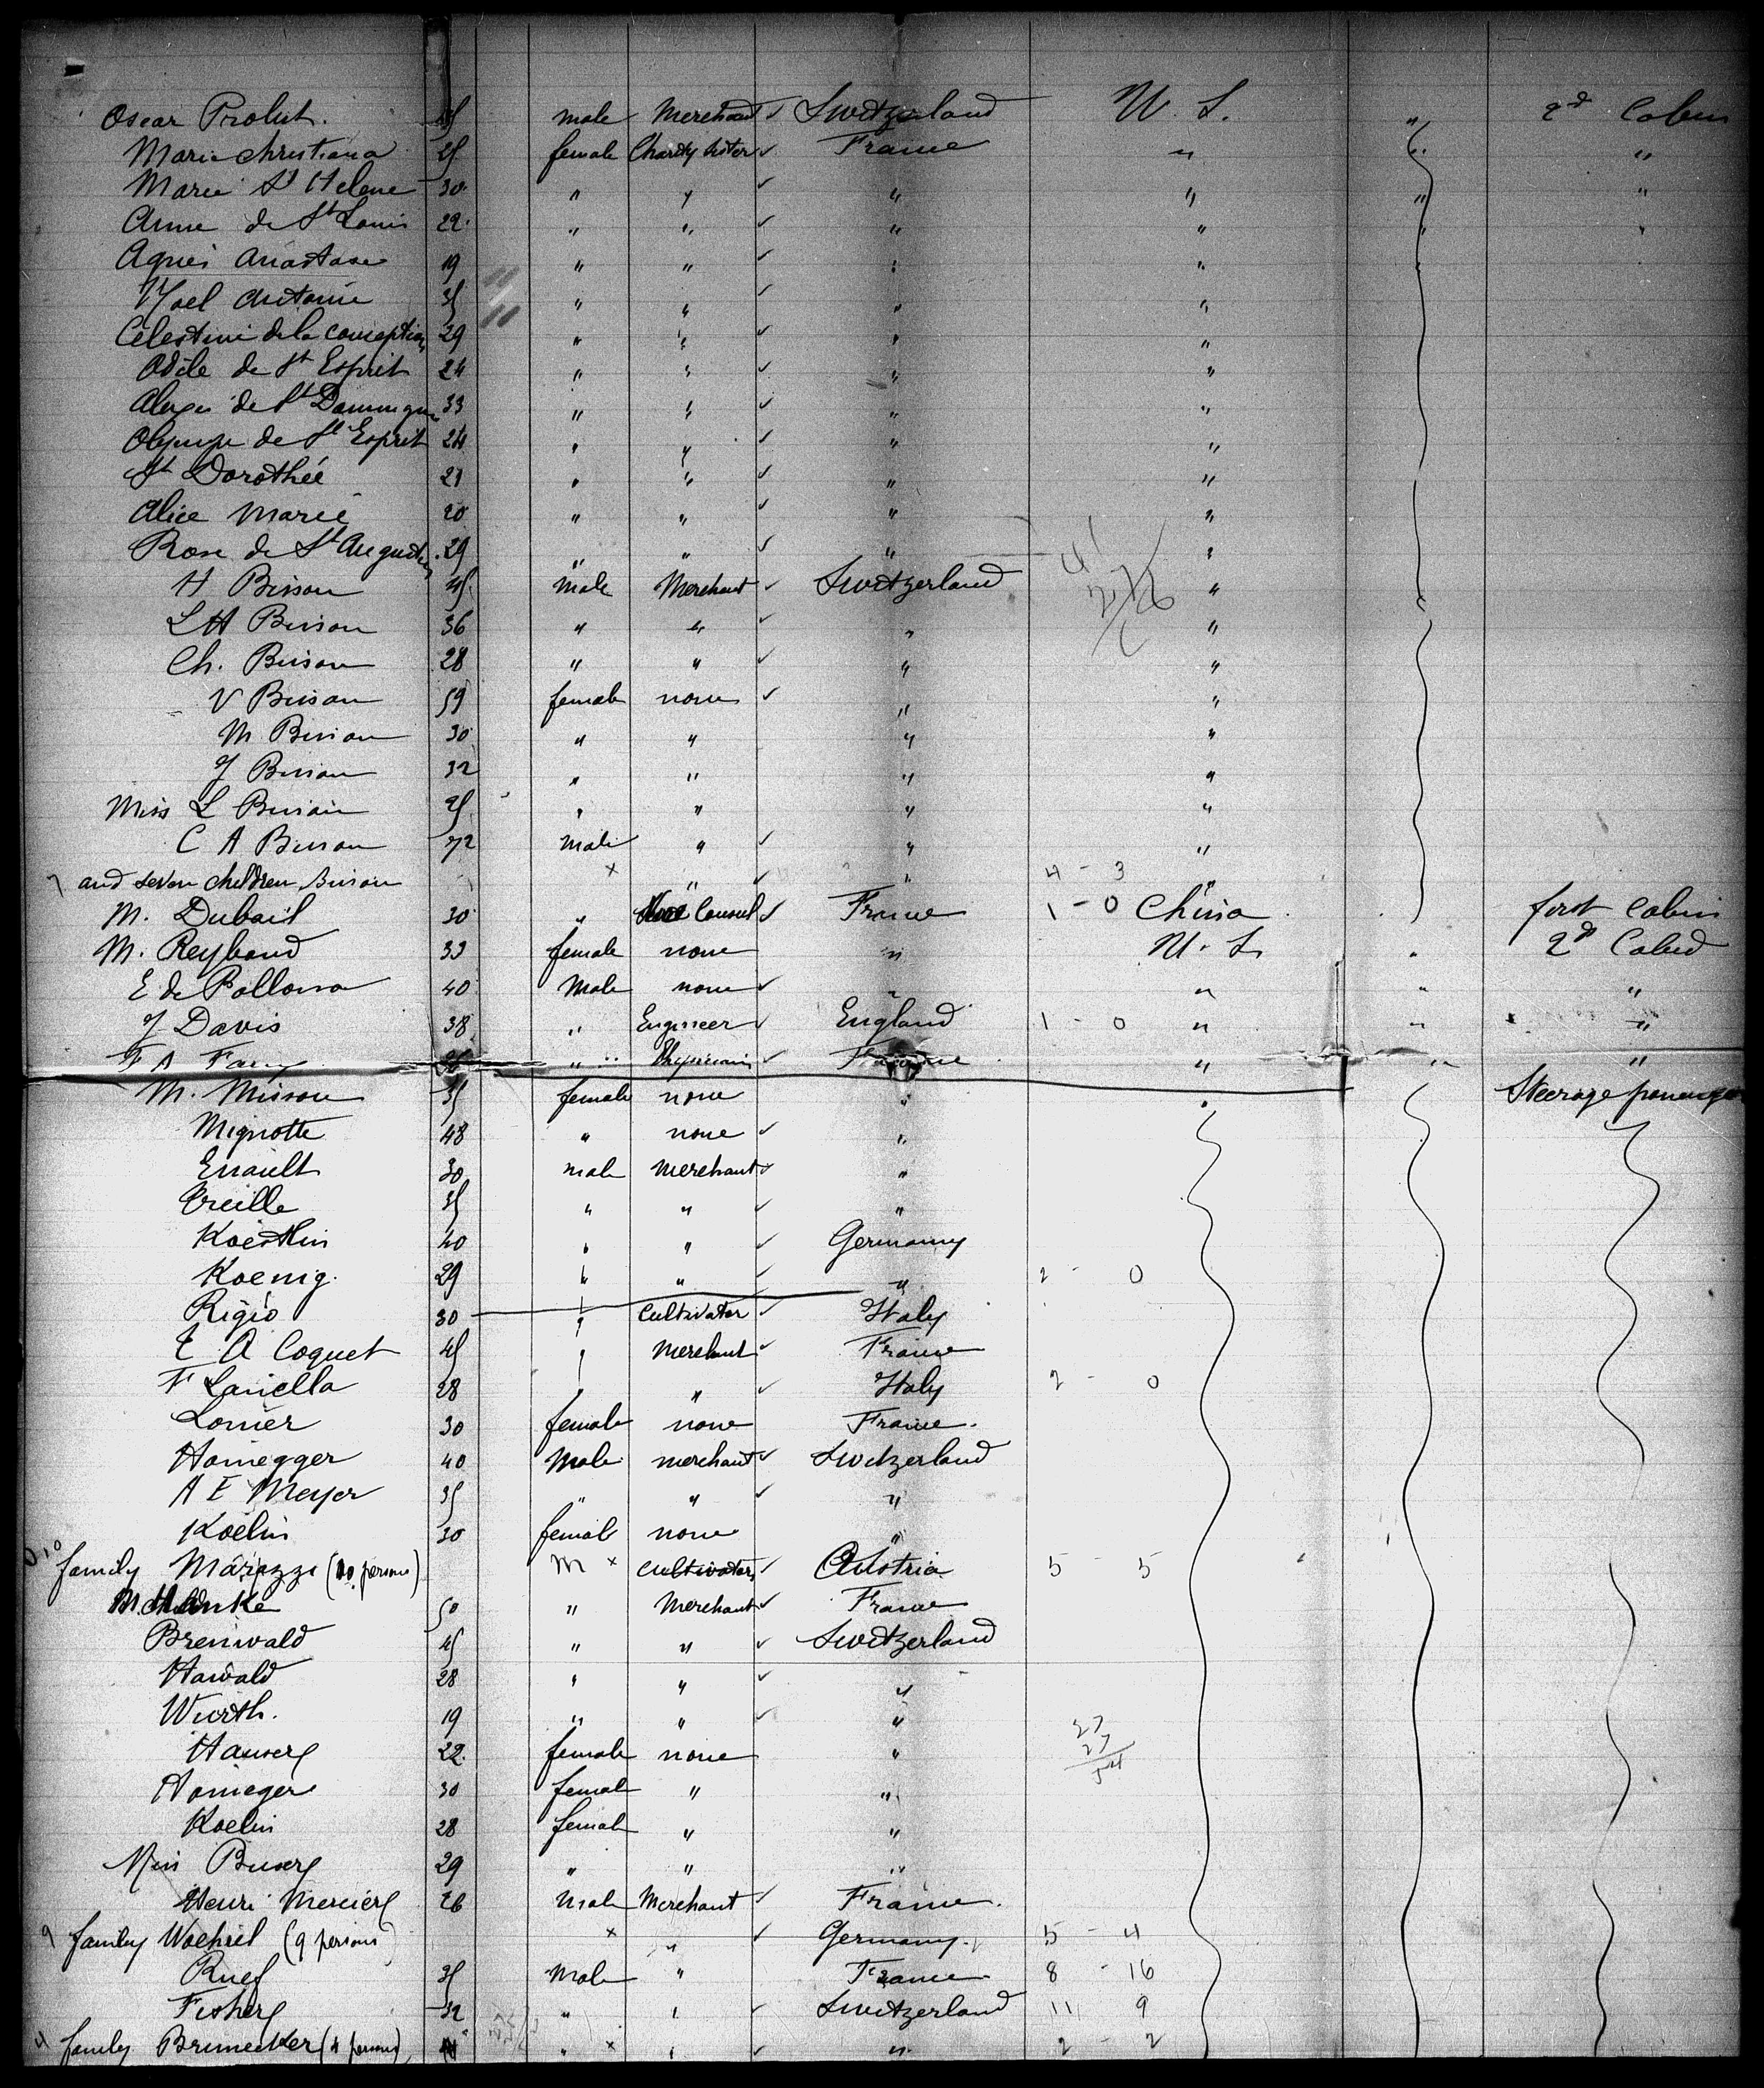 Oscar Prolut. male Merchant ✓ Switzerland U. S. " 2d Cabin
Marie Christiana 25 female Charity Sister ✓ France " " "
Marie St Helene 30 " " ✓ " " " "
Anne de St Louis 22 " " ✓ " " " "
Agnes Anastase 19 " " ✓ " "
Noel Antoine 35 " " ✓ " "
Célestine de la Conception 29 " " ✓ " "
Odile de St Esprit 24 " " ✓ " "
de St Dominique 33 " " ✓ " "
Olympe de St Esprit 24 " " ✓ " "
St Dorothée 23 " " ✓ " "
Alice Marie 20 " " ✓ " "
Rose de St Augustin 29 " " ✓ " "
H Bisson 45 male Merchant ✓ Switzerland "
L H Bisson 36 " " ✓ " "
Ch. Bisson 28 " " ✓ " "
V Bisson 59 female none ✓ " "
M Bisson 30 " " " "
J Bisson 32 " " " "
Miss L Bisson 25 " " " "
C A Bisson 72 male " ✓ " "
7 and seven children Bisson × " ✓ " 4 - 3 "
M. Dubail 30 " Consul ✓ France 1 - 0 China first Cabin
M. Reybaud 33 female none " U. S. " 2d Cabin
E de Pollonna 40 Male none ✓ " " " "
J Davis 38 " Engineer ✓ England 1 - 0 " " "
F A " Physician ✓ France " " "
M. Misson 35 female none " " Steerage passenger
Mignotte 48 " none ✓ "
Enault 30 male merchant ✓ "
Treille 35 " " ✓ "
Koestlin 40 " " ✓ Germany
Koenig. 29 " " ✓ " 2 - 0
Rigio 30 " Cultivator ✓ Italy
E A Coquet 45 " Merchant ✓ France
F Lanella 28 " " ✓ Italy 2 - 0
Lorier 30 female none France.
Honegger 40 Male merchant ✓ Switzerland
A E Meyer 35 " " ✓ "
Koelin 30 female none "
10 family Marazzi (10 persons) M × Cultivators ✓ Austria 5 - 5
50 " Merchant ✓ France
Brenwald 45 " " ✓ Switzerland
Hawald 28 " " ✓ "
Wurth. 19 " " ✓ "
Hauser 22 female none " 27 27 54
Honeger 30 female " "
Koelin 28 female " "
Miss Buser 29 " " "
Henri Mercier 26 Male Merchant ✓ France.
9 family Woehrel (9 persons) × " ✓ Germany. 5 - 4
Ruef 35 Male " France 8 - 16
Fisher 32 " " ✓ Switzerland 11 9
4 family Brunecker (4 persons) " × " ✓ " 2 - 2